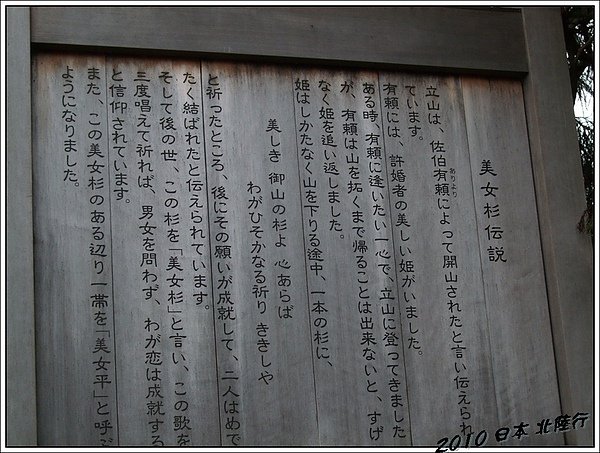 美女杉伝説
立山は、佐伯有頼によって開山されたと言い伝えられ
ありより
ています。
有頼には、許婚者の美しい姫がいました。
ある時、有頼に逢いたい一心で、立山に登ってきました
が、有頼は山を拓くまで帰ることは出来ないと、すげ
なく姫を追い返しました。
姫はしかたなく山を下りる途中、一本の杉に、
美しき 御山の杉よ 心あらば
わがひそかなる祈り ききしや
と祈ったところ、後にその願いが成就して、二人はめで
たく結ばれたと伝えられています。
そして後の世、この杉を「美女杉」と言い、この歌を
三度唱えて祈れば、男女を問わず、わが恋は成就する
と信仰されています。
また、この美女杉のある辺り一帯を「美女平」と呼ぶ
ようになりました。
2010 日本 北陸行